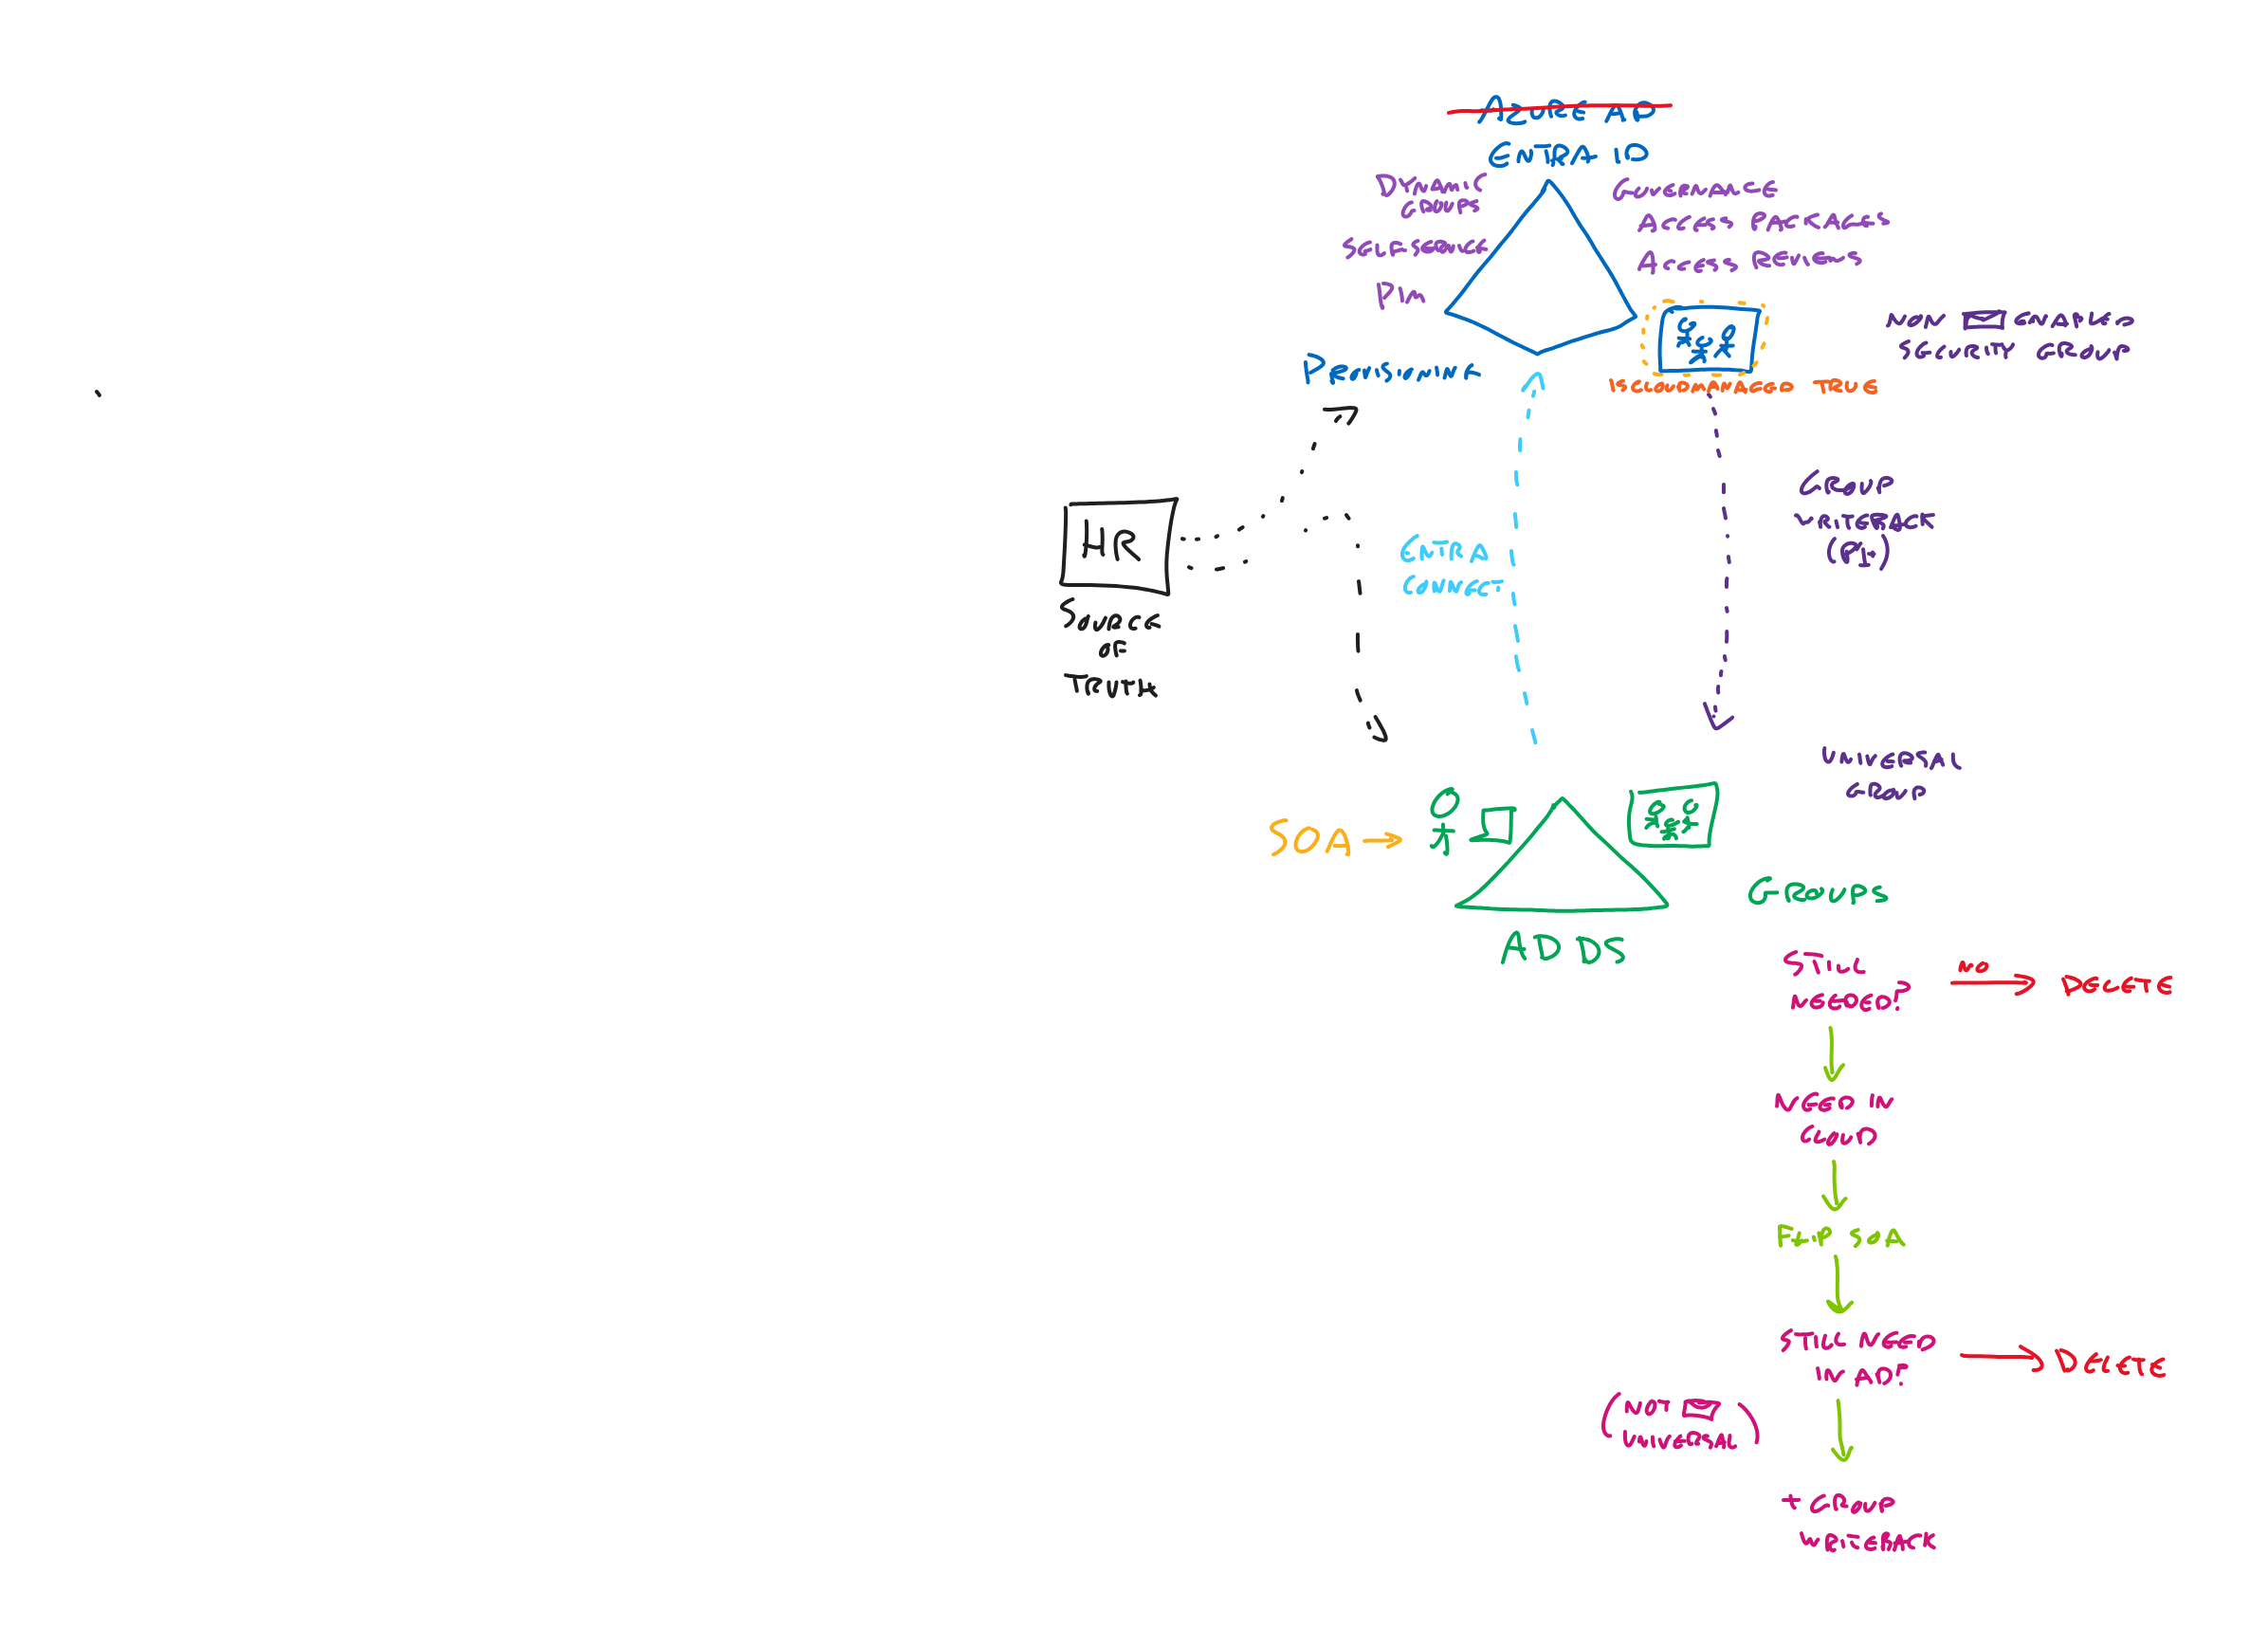 AZURE AD
ENTRA ID
DYNAMIC
GROUPS
SELFSERVICE
PIM
GOVERNANCE
ACCESS PACKAGES
ACCESS REVIEWS
PROVISIONING
ISCLOUDMANAGED TRUE
NON ENABLED
SECURITY GROUP
HR
SOURCE
OF
TRUTH
ENTRA
CONNECT
GROUP
WRITEBACK
(P1+)
UNIVERSAL
GROUP
SOA
AD DS
GROUPS
STILL
NEEDED?
NO
DELETE
NEED IN
CLOUD
FLIP SOA
STILL NEED
IN AD?
DELETE
(NOT
UNIVERSAL)
+ GROUP
WRITEBACK